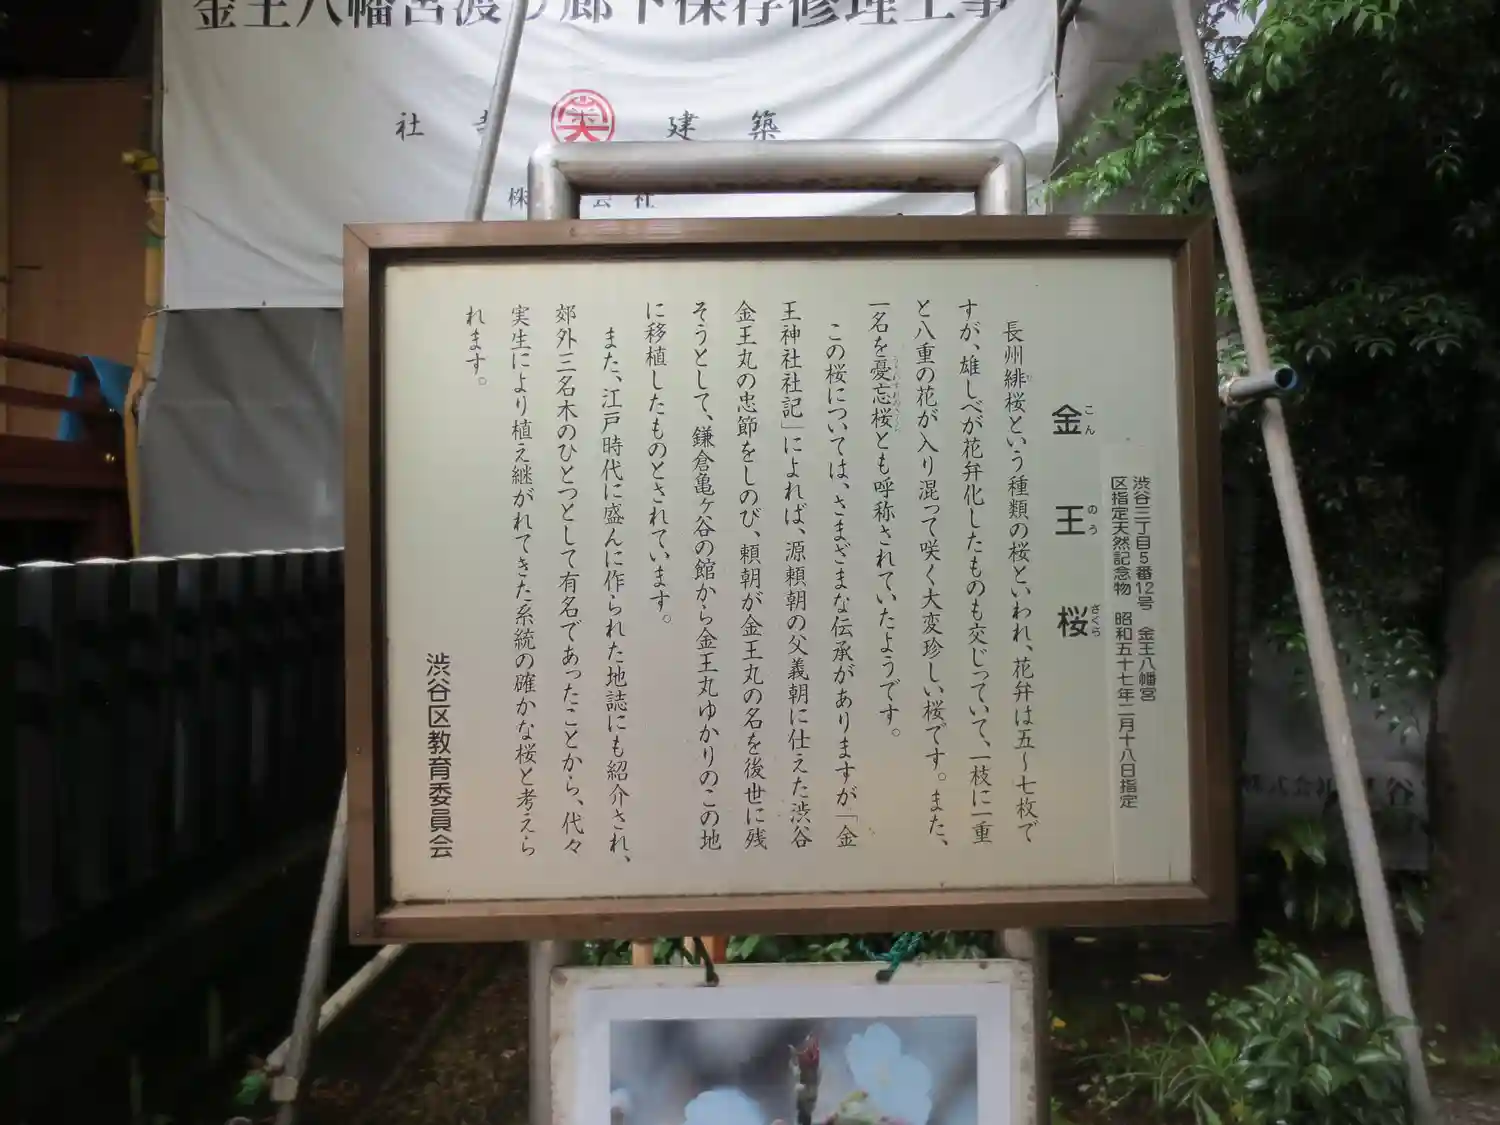 金王八幡宮渡り廊下保存修理工事
社寺
建築
株
会社
渋谷三丁目5番12号 金王八幡宮
区指定天然記念物 昭和五十七年二月十八日指定
金王桜
こんのうざくら
長州緋桜という種類の桜といわれ、花弁は五〜七枚で
すが、雄しべが花弁化したものも交じっていて、一枝に一重
と八重の花が入り混って咲く大変珍しい桜です。また、
一名を憂忘桜とも呼称されていたようです。
この桜については、さまざまな伝承がありますが「金
王神社社記」によれば、源頼朝の父義朝に仕えた渋谷
金王丸の忠節をしのび、頼朝が金王丸の名を後世に残
そうとして、鎌倉亀ヶ谷の館から金王丸ゆかりのこの地
に移植したものとされています。
また、江戸時代に盛んに作られた地誌にも紹介され、
郊外三名木のひとつとして有名であったことから、代々
実生により植え継がれてきた系統の確かな桜と考えら
れます。
渋谷区教育委員会